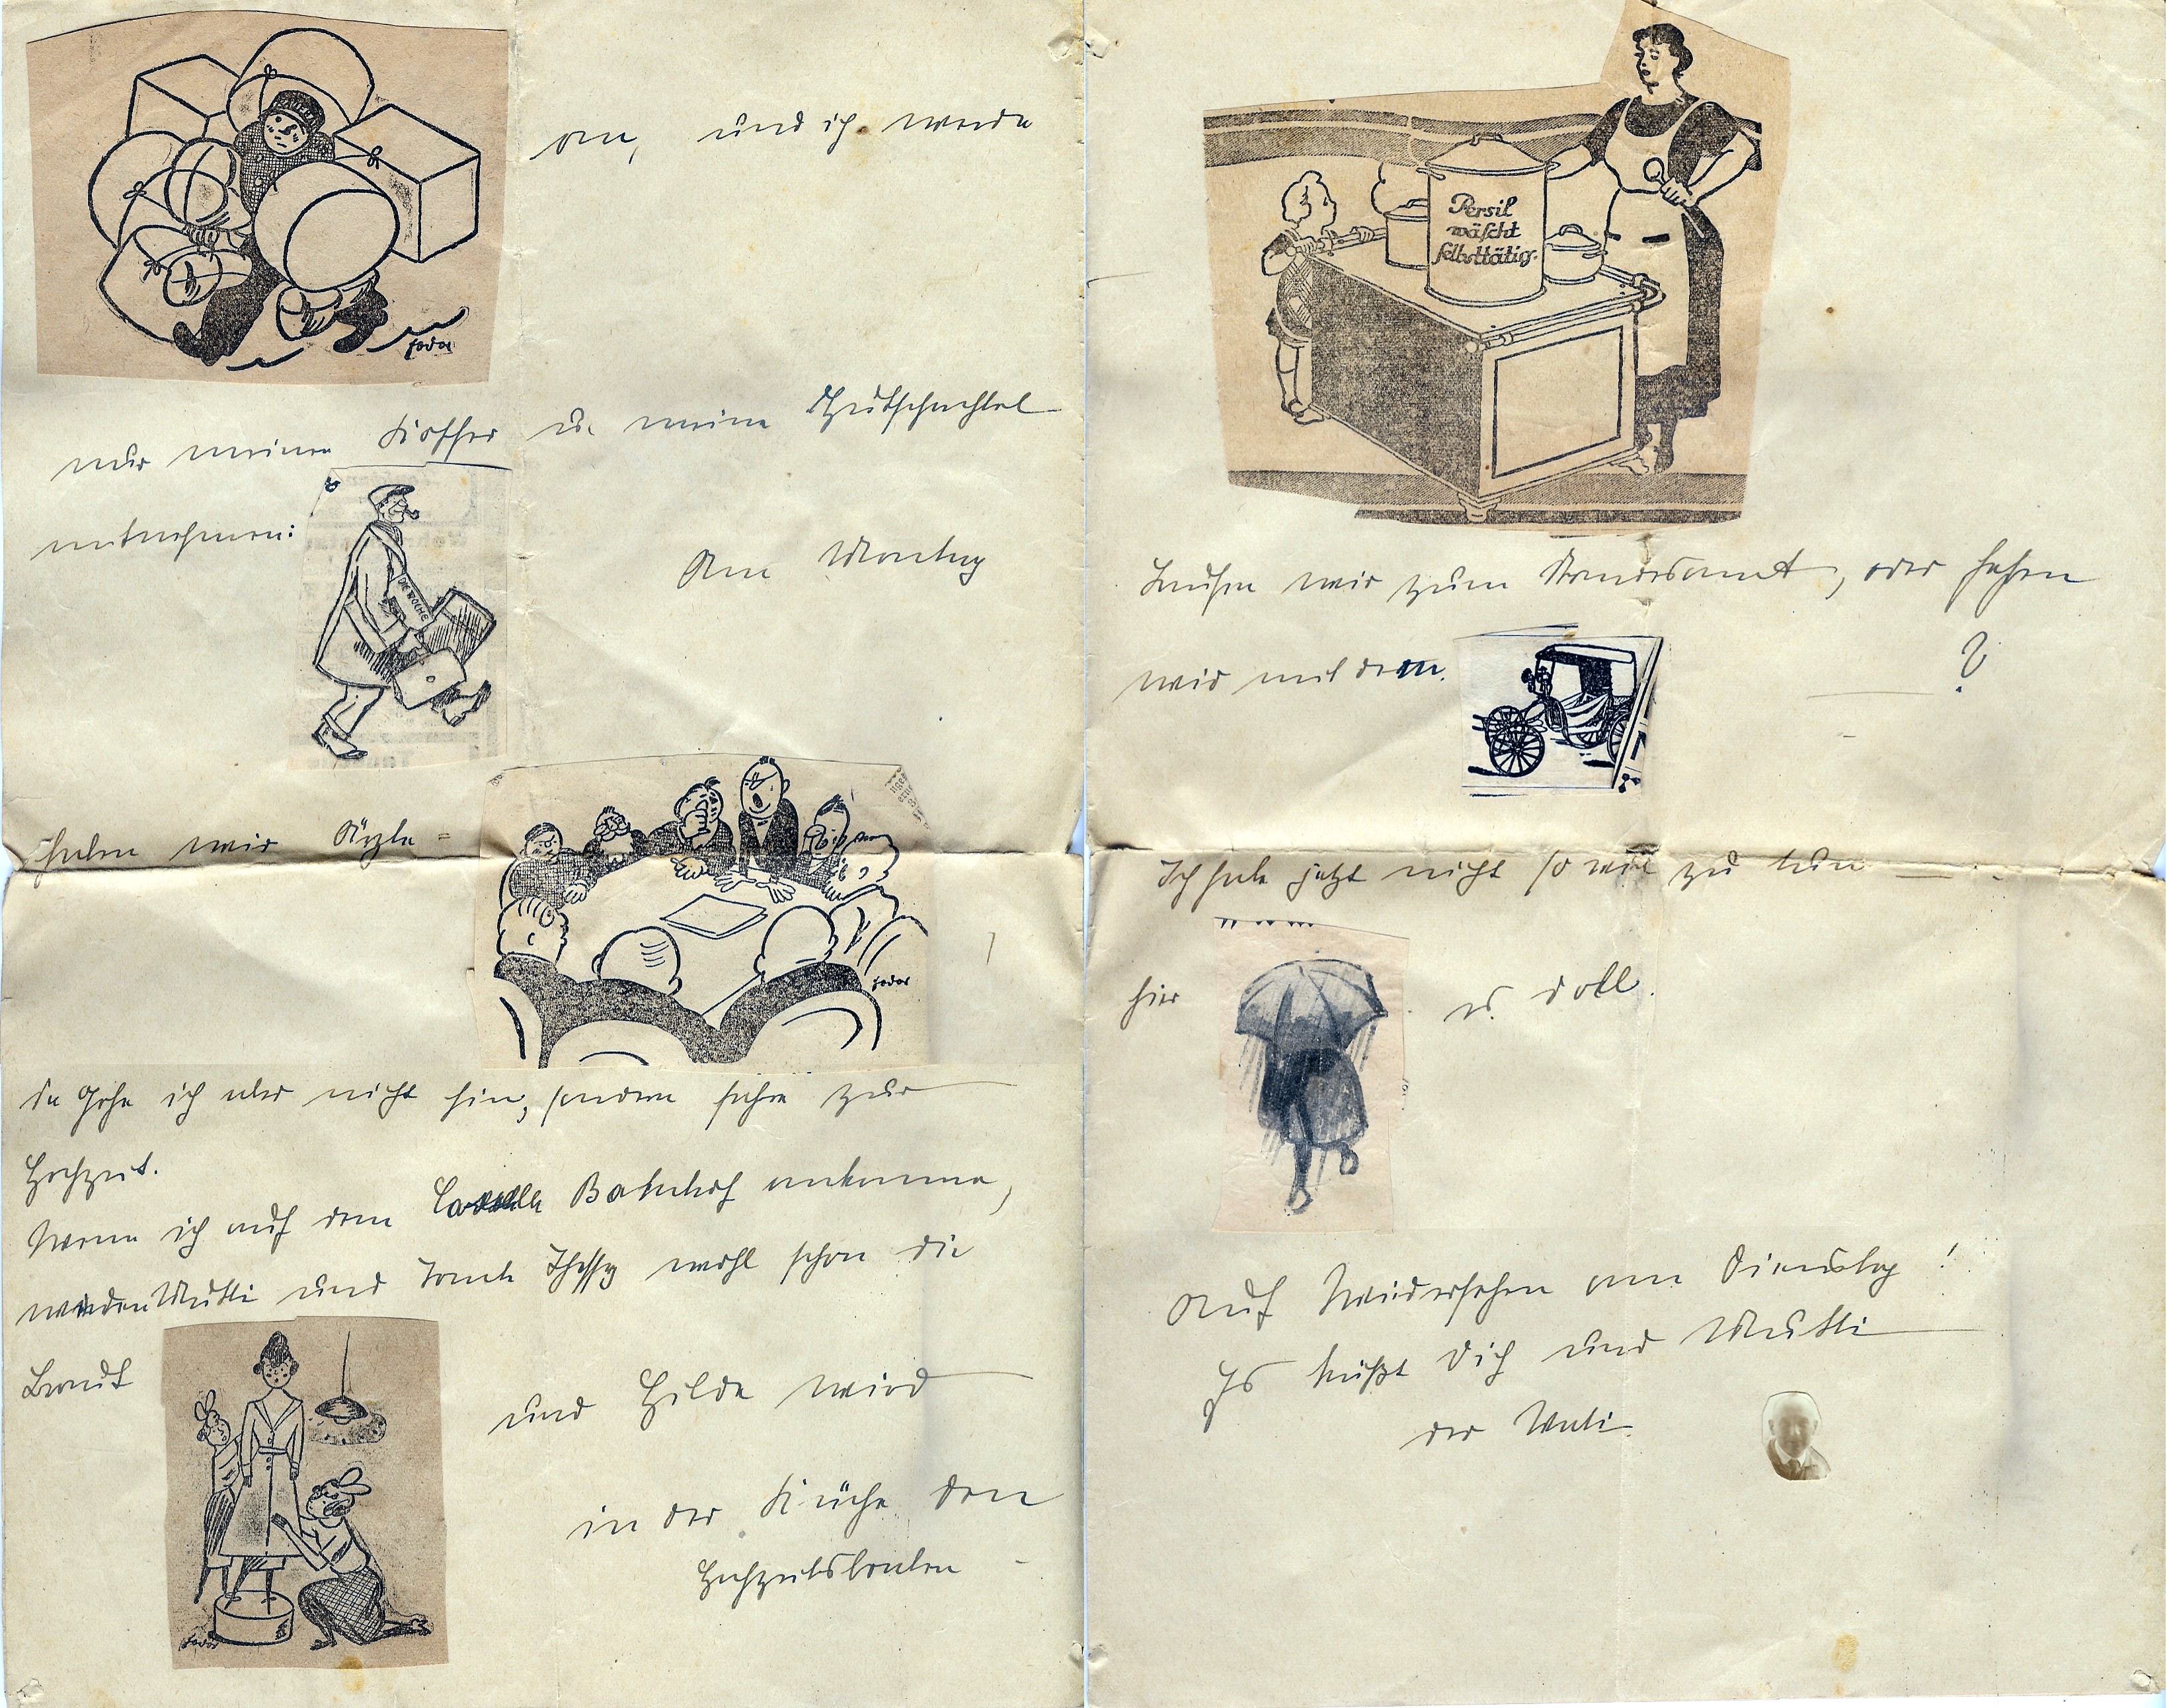 an, und ich werde
nur meinen Koffer u. meine Hutschachtel
mitnehmen:
DIE WOCHE
Am Montag
haben wir Ärzte=
fodor
fodor
da gehe ich aber nicht hin, sondern fahre zur
Hochzeit.
Wenn ich auf dem Bahnhof ankomme,
werden Mutti und Tante Thessy wohl schon die
Braut
und Hilde wird
in der Küche den
Hochzeitsbraten
fodor
Persil
wäscht
selbsttätig.
Laufen wir zum Standesamt, oder fahren
wir mit dem
?
Ich habe jetzt nicht so viel zu tun
hier
es doll.
Auf Wiedersehen am Dienstag!
Es küßt Dich und Mutti
der Vati